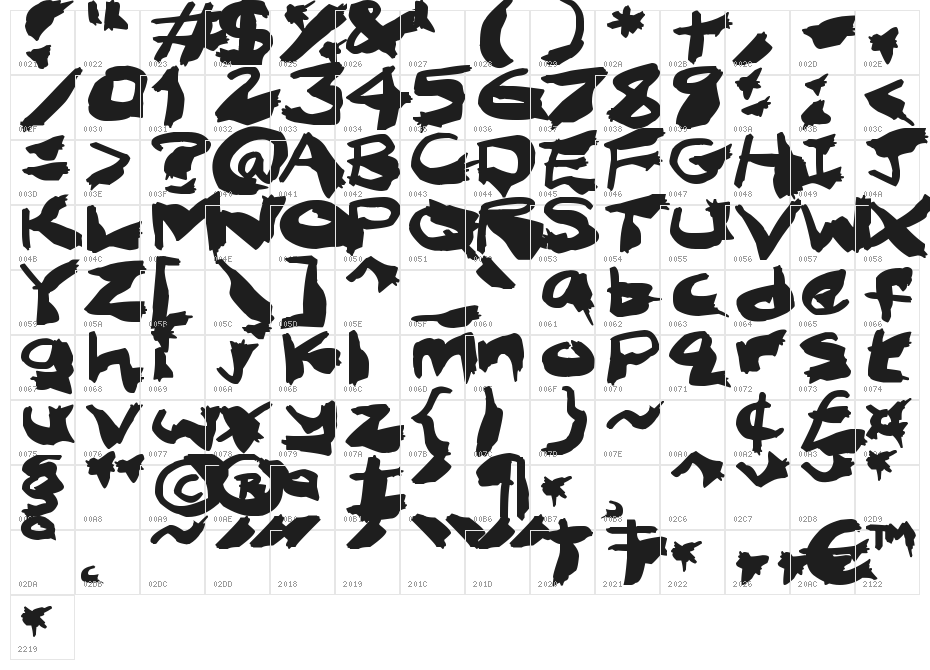 ! " # $ % & ' ( ) * + , - .
0021 0022 0023 0024 0025 0026 0027 0028 0029 002A 002B 002C 002D 002E
/ 0 1 2 3 4 5 6 7 8 9 : ; <
002F 0030 0031 0032 0033 0034 0035 0036 0037 0038 0039 003A 003B 003C
= > ? @ A B C D E F G H I J
003D 003E 003F 0040 0041 0042 0043 0044 0045 0046 0047 0048 0049 004A
K L M N O P Q R S T U V W X
004B 004C 004D 004E 004F 0050 0051 0052 0053 0054 0055 0056 0057 0058
Y Z [ \ ] ^ _ ` a b c d e f
0059 005A 005B 005C 005D 005E 005F 0060 0061 0062 0063 0064 0065 0066
g h i j k l m n o p q r s t
0067 0068 0069 006A 006B 006C 006D 006E 006F 0070 0071 0072 0073 0074
u v w x y z { | } ~ ¢ £ ¤
0075 0076 0077 0078 0079 007A 007B 007C 007D 007E 00A0 00A2 00A3 00A4
§ ¨ © ® ° ± ´ ¶ · ¸ ˆ ˇ ˘ ˙
00A7 00A8 00A9 00AE 00B0 00B1 00B4 00B6 00B7 00B8 02C6 02C7 02D8 02D9
˚ ˛ ˜ ˝ ‘ ’ “ ” † ‡ • … € ™
02DA 02DB 02DC 02DD 2018 2019 201C 201D 2020 2021 2022 2026 20AC 2122
∙
2219